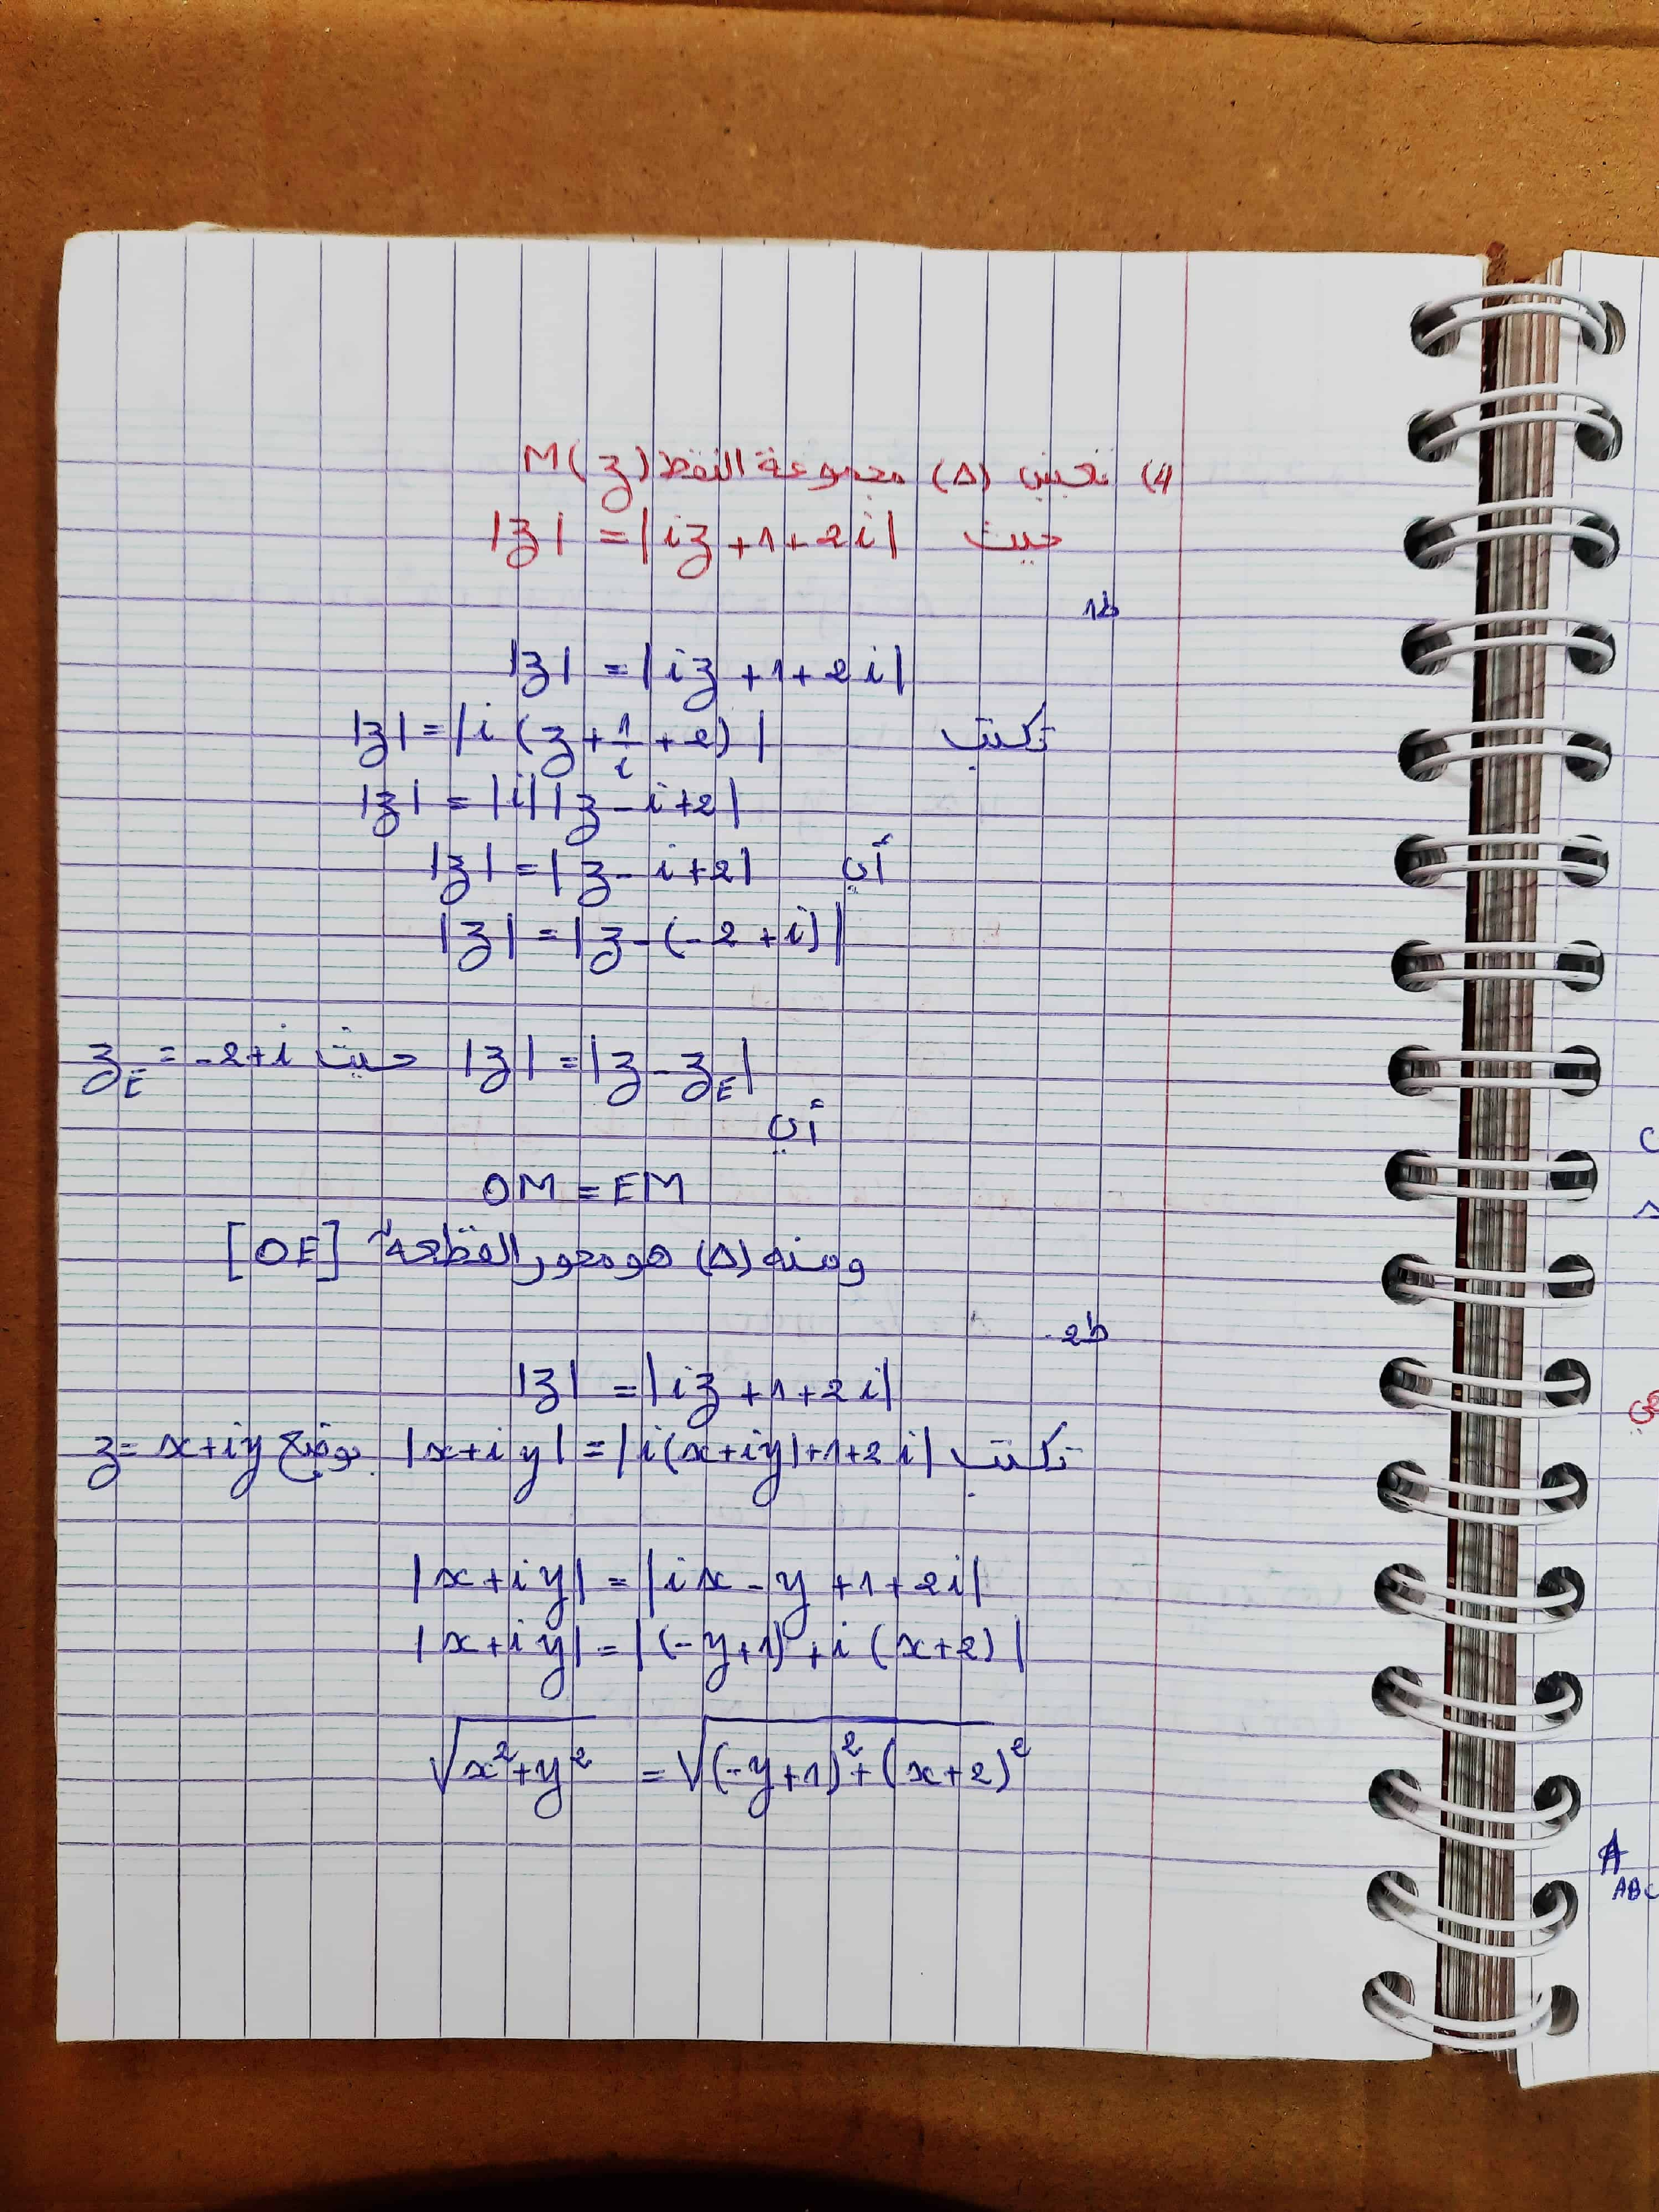 4) تعيين (Δ) مجموعة النقط M(z)
حيث |z| = |iz+1+2i|
1ط
|z| = |iz+1+2i|
تكتب |z| = |i(z+1/i+2)|
|z| = |i||z-i+2|
أي |z| = |z-i+2|
|z| = |z-(-2+i)|
|z| = |z-z_E| حيث z_E = -2+i
أي
OM = EM
ومنه (Δ) هو محور القطعة [OE]
2ط
|z| = |iz+1+2i|
تكتب |x+iy| = |i(x+iy)+1+2i| بوضع z = x+iy
|x+iy| = |ix-y+1+2i|
|x+iy| = |(-y+1)+i(x+2)|
√(x²+y²) = √((-y+1)²+(x+2)²)
A
ABC